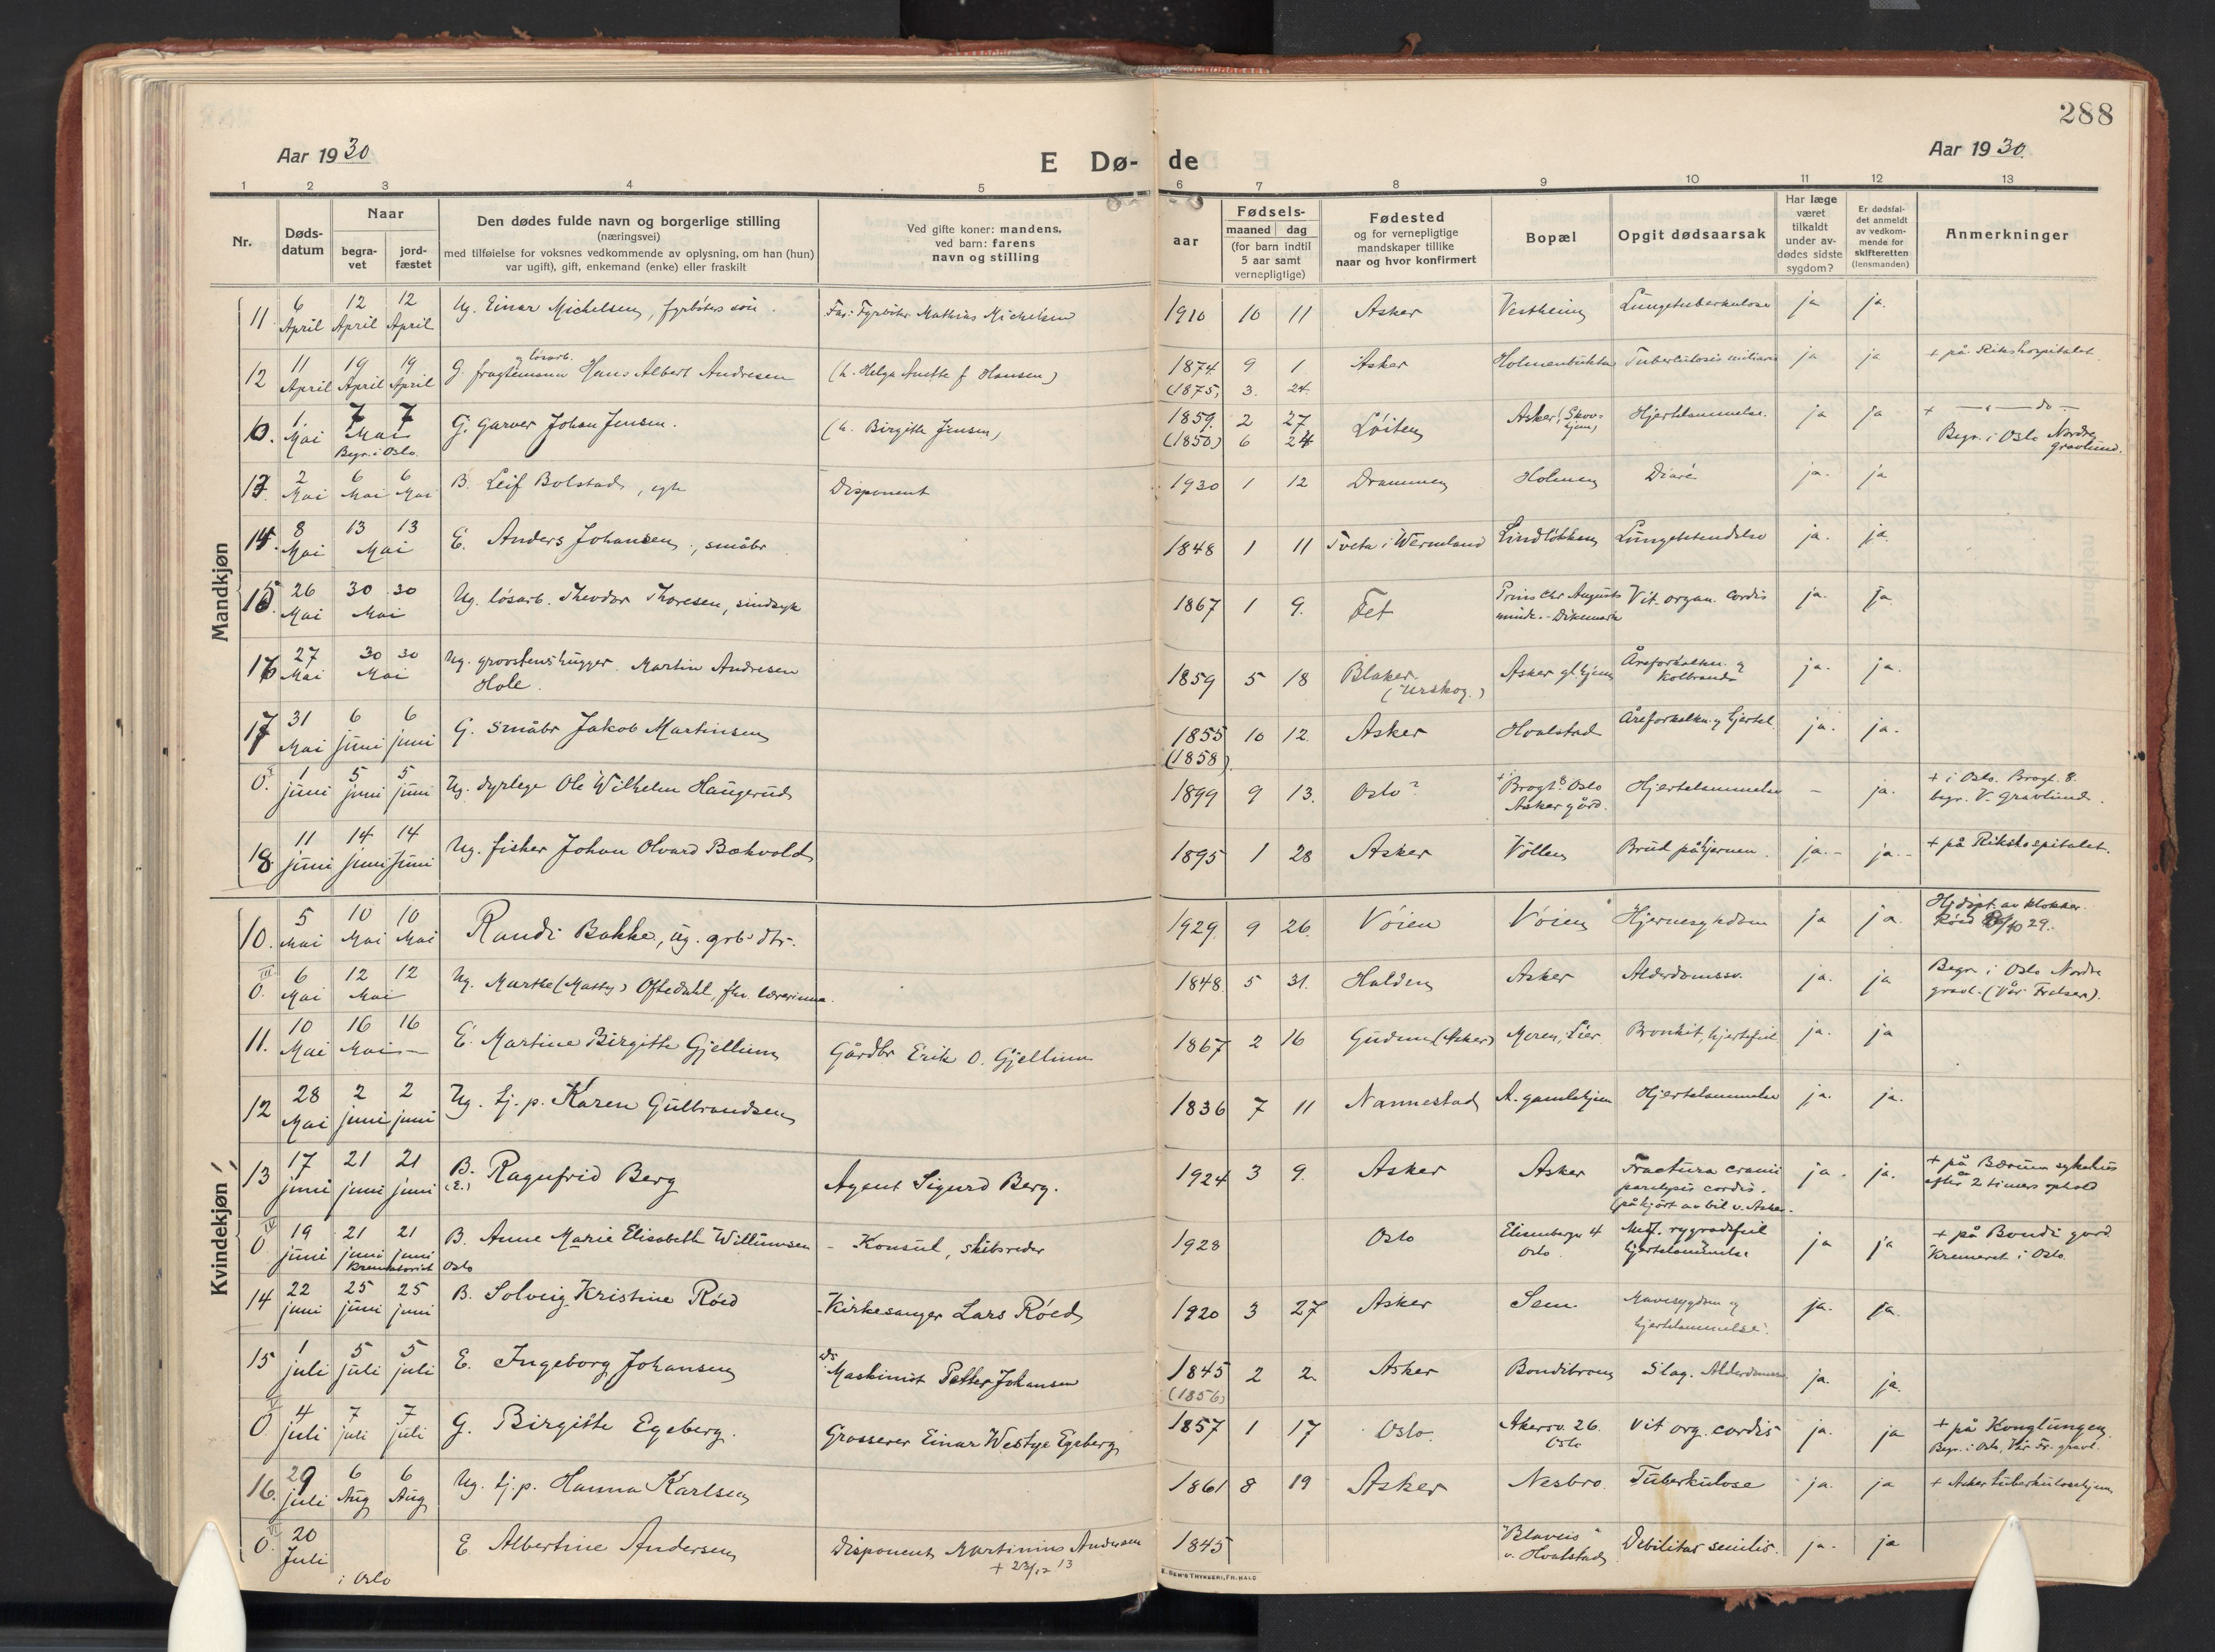 288
Aar 1930
E Dø-de
Aar 1930.
1 2 3 4 5 6 7 8 9 10 11 12 13
Nr.
Døds-
datum
Naar
begra-
vet
jord-
fæstet
Den dødes fulde navn og borgerlige stilling
(næringsvei)
med tilføielse for voksnes vedkommende av oplysning, om han (hun)
var ugift), gift, enkemand (enke) eller fraskilt
Ved gifte koner: mandens,
ved barn: farens
navn og stilling
aar
Fødsels-
maaned dag
(for barn indtil
5 aar samt
vernepligtige)
Fødested
og for vernepligtige
mandskaper tillike
naar og hvor konfirmert
Bopæl
Opgit dødsaarsak
Har læge
været
tilkaldt
under av-
dødes sidste
sygdom?
Er dødsfal-
det anmeldt
av vedkom-
mende for
skifteretten
(lensmanden)
Anmerkninger
Mandkjøn
11. 6 April 12 April 12 April Ug. Einar Michelsen, fyrbøters søn. Far: Fyrbøter Mathias Michelsen 1910 10 11 Asker Vestheim Lungetuberkulose ja ja.
og løsarb.
12 11 April 19 April 19 April G. fragtemann Hans Albert Andresen (h. Helga Anette f. Hansen) 1874 9 1 Asker Holmenbukta Tuberculosis miliaris ja ja + på Rikshospitalet.
(1875) 3. 24.
0. 1. Mai 7 Mai 7 G. Garver Johan Jensen. (h. Birgithe Jensen) 1859. 2 27 Løiten Asker (Skov-
hjem) Hjertelammelse. ja ja + — " — do —
Begr. i Oslo (1850) 6 24 Begr. i Oslo Nordre
gravlund.
13. 2 Mai 6 Mai 6 Mai B. Leif Bolstad, egte Disponent 1930 1 12 Drammen Holmen Diaré ja. ja
14. 8 Mai 13 13 Mai E. Anders Johansen, småbr 1848 1 11 Tveta i Wermeland Lindløkken Lungebetendelse ja. ja
15 26 Mai 30 30 Mai Ug. løsarb. Theodor Thoresen, sindsyk 1867 1 9. Fet Prins Chr Augusts
minde. - Dikemark Vit. organ. cordis ja. ja.
16 27 Mai 30 30 Mai Ug. grovstenshugger Martin Andresen
Hole. 1859 5 18 Blaker
(Urskog.) Asker gl. hjem Åreforkalkn. og
Kolbrand ja. ja.
17 31 Mai 6 juni 6 juni G. Småbr Jakob Martinsen 1855 10 12. Asker Hvalstad Åreforkalkn. og hjertel. ja. ja.
(1858)
0. 1 juni 5 juni 5 juni Ug. dyrlege Ole Wilhelm Haugerud 1899 9 13. Oslo? + Brogt. 8 Oslo
Asker gård. Hjertelammelse - ja. + i Oslo. Brogt. 8.
begr. V. gravlund.
18. 11 juni 14 juni 14 juni Ug. fisker Johan Olvard Bækvold 1895 1 28 Asker Vollen Brud på hjernen. ja.- ja.- + på Rikshospitalet.
Kvindekjøn
10. 5 Mai 10 Mai 10 Mai Randi Bakke, ug. grb. dtr. 1929. 9 26. Vøien Vøien Hjernesykdom ja ja. Hjdøpt. av klokker
Røed 29.
III
0. 6 Mai 12 12 Mai Ug. Marthe (Matty) Oftedahl, fhv. lærerinne. 1848. 5 31. Halden Asker Alderdomssv. ja. ja Begr. i Oslo Nordre
gravl. (Vår Frelsers).
11. 10 Mai 16 Mai 16 — E. Martine Birgitte Gjellum Gårdbr. Erik O. Gjellum 1867 2 16 Gudem (Asker) Moren, Lier Bronkit, hjertefeil ja. ja
12 28 Mai 2 juni 2 juni Ug. tj. p. Karen Gulbrandsen 1836 7 11 Nannestad A. gamlehjem Hjertelammelse ja. ja.
13 17 juni 21 juni 21 juni B. Ragnfrid Berg Agent Sigurd Berg. 1924 3 9. Asker Asker Fractura cranii
paralysis cordis.
(påkjørt av bil v. Asker. ja. ja. + på Bærum sykehus
efter 2 timers ophold
(E.)
IV
0 19 juni 21 juni 21 juni B. Anne Marie Elisabeth Willumsen - Konsul, skibsreder 1928 Oslo Elisenbergv 4
Oslo. Medf. rygradsfeil
hjertelammelse ja ja + på Bondi gård.
Kremeret i Oslo.
Krematoriet Oslo
14 22 juni 25 juni 25 juni B. Solveig Kristine Røed Kirkesanger Lars Røed 1920 3 27 Asker Sem. Mavesygdom og
hjertelammelse. ja. ja.
15 1 juli 5 juli 5 juli E. Ingeborg Johansen Maskinist Petter Johansen 1845 2 2 Asker Bondibroen Slag. Alderdomssv. ja. ja.
(1856)
V
0. 4 juli 7 juli 7 juli G. Birgitte Egeberg. Grosserer Einar Westye Egeberg 1857 1 17 Oslo. Akersv. 26.
Oslo Vit org. cordis ja. ja + på Konglungen.
Begr. i Oslo, Vår Fr. gravl.
16. 29 juli 6 Aug 6 Aug Ug. tj. p. Hanna Karlsen 1861 8 19 Asker Nesbro. Tuberkulose ja. ja + Asker tuberkulosehjem
VI
0. 20 Juli E. Albertine Andersen Disponent Martinius Andersen 1845 "Blaveis"
v. Hvalstad Debilitas senilis. ja. ja
i Oslo + 23/12 13